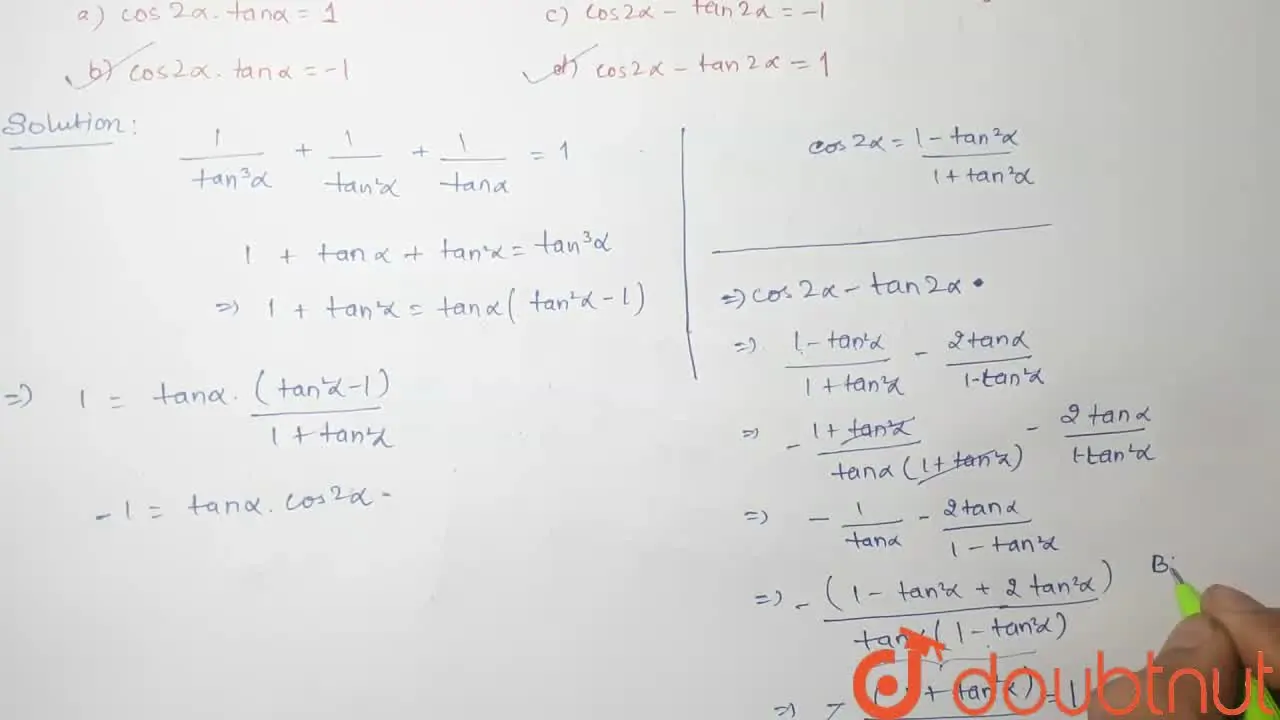 a) cos 2α . tanα = 1
c) cos2α - tan 2α = -1
b) cos2α . tanα = -1
d) cos2α - tan 2α = 1
Solution:
1/tan³α + 1/tan²α + 1/tanα = 1
1 + tanα + tan²α = tan³α
=> 1 + tan²α = tanα ( tan²α - 1)
=> 1 = tanα . (tan²α - 1)/(1 + tan²α)
-1 = tanα . cos2α
cos 2α = (1 - tan²α)/(1 + tan²α)
=> cos 2α - tan 2α
=> (1 - tan²α)/(1 + tan²α) - 2tanα/(1 - tan²α)
=> - (1 + tan²α)/(tanα (1 + tan²α)) - 2 tanα/(1 - tan²α)
=> - 1/tanα - 2tanα/(1 - tan²α)
=> - (1 - tan²α + 2 tan²α)/(tan (1 - tan²α)) B
=> - ( + tan²α) = 1
doubtnut